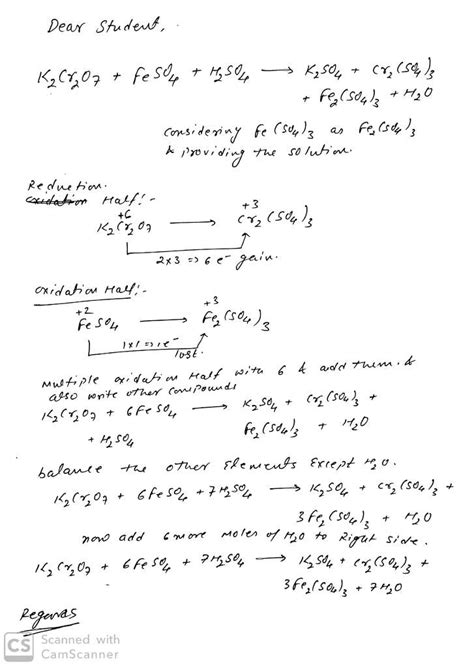 Dear Student,
K₂Cr₂O₇ + FeSO₄ + H₂SO₄ ⟶ K₂SO₄ + Cr₂(SO₄)₃
+ Fe₂(SO₄)₃ + H₂O
considering Fe(SO₄)₃ as Fe₂(SO₄)₃
& providing the solution.
Reduction
oxidation Half:-
+6 +3
K₂Cr₂O₇ ⟶ Cr₂(SO₄)₃
2x3 => 6 e⁻ gain.
oxidation Half:-
+2 +3
FeSO₄ ⟶ Fe₂(SO₄)₃
1x1 => 1e⁻
lost.
Multiple oxidation Half with 6 & add them. &
also write other compounds
K₂Cr₂O₇ + 6FeSO₄ ⟶ K₂SO₄ + Cr₂(SO₄)₃ +
+ H₂SO₄ Fe₂(SO₄)₃ + H₂O
balance the other elements except H₂O.
K₂Cr₂O₇ + 6FeSO₄ + 7H₂SO₄ ⟶ K₂SO₄ + Cr₂(SO₄)₃ +
3Fe₂(SO₄)₃ + H₂O
now add 6 more moles of H₂O to Right side.
K₂Cr₂O₇ + 6FeSO₄ + 7H₂SO₄ ⟶ K₂SO₄ + Cr₂(SO₄)₃ +
3Fe₂(SO₄)₃ + 7H₂O
Regards
CS Scanned with
CamScanner